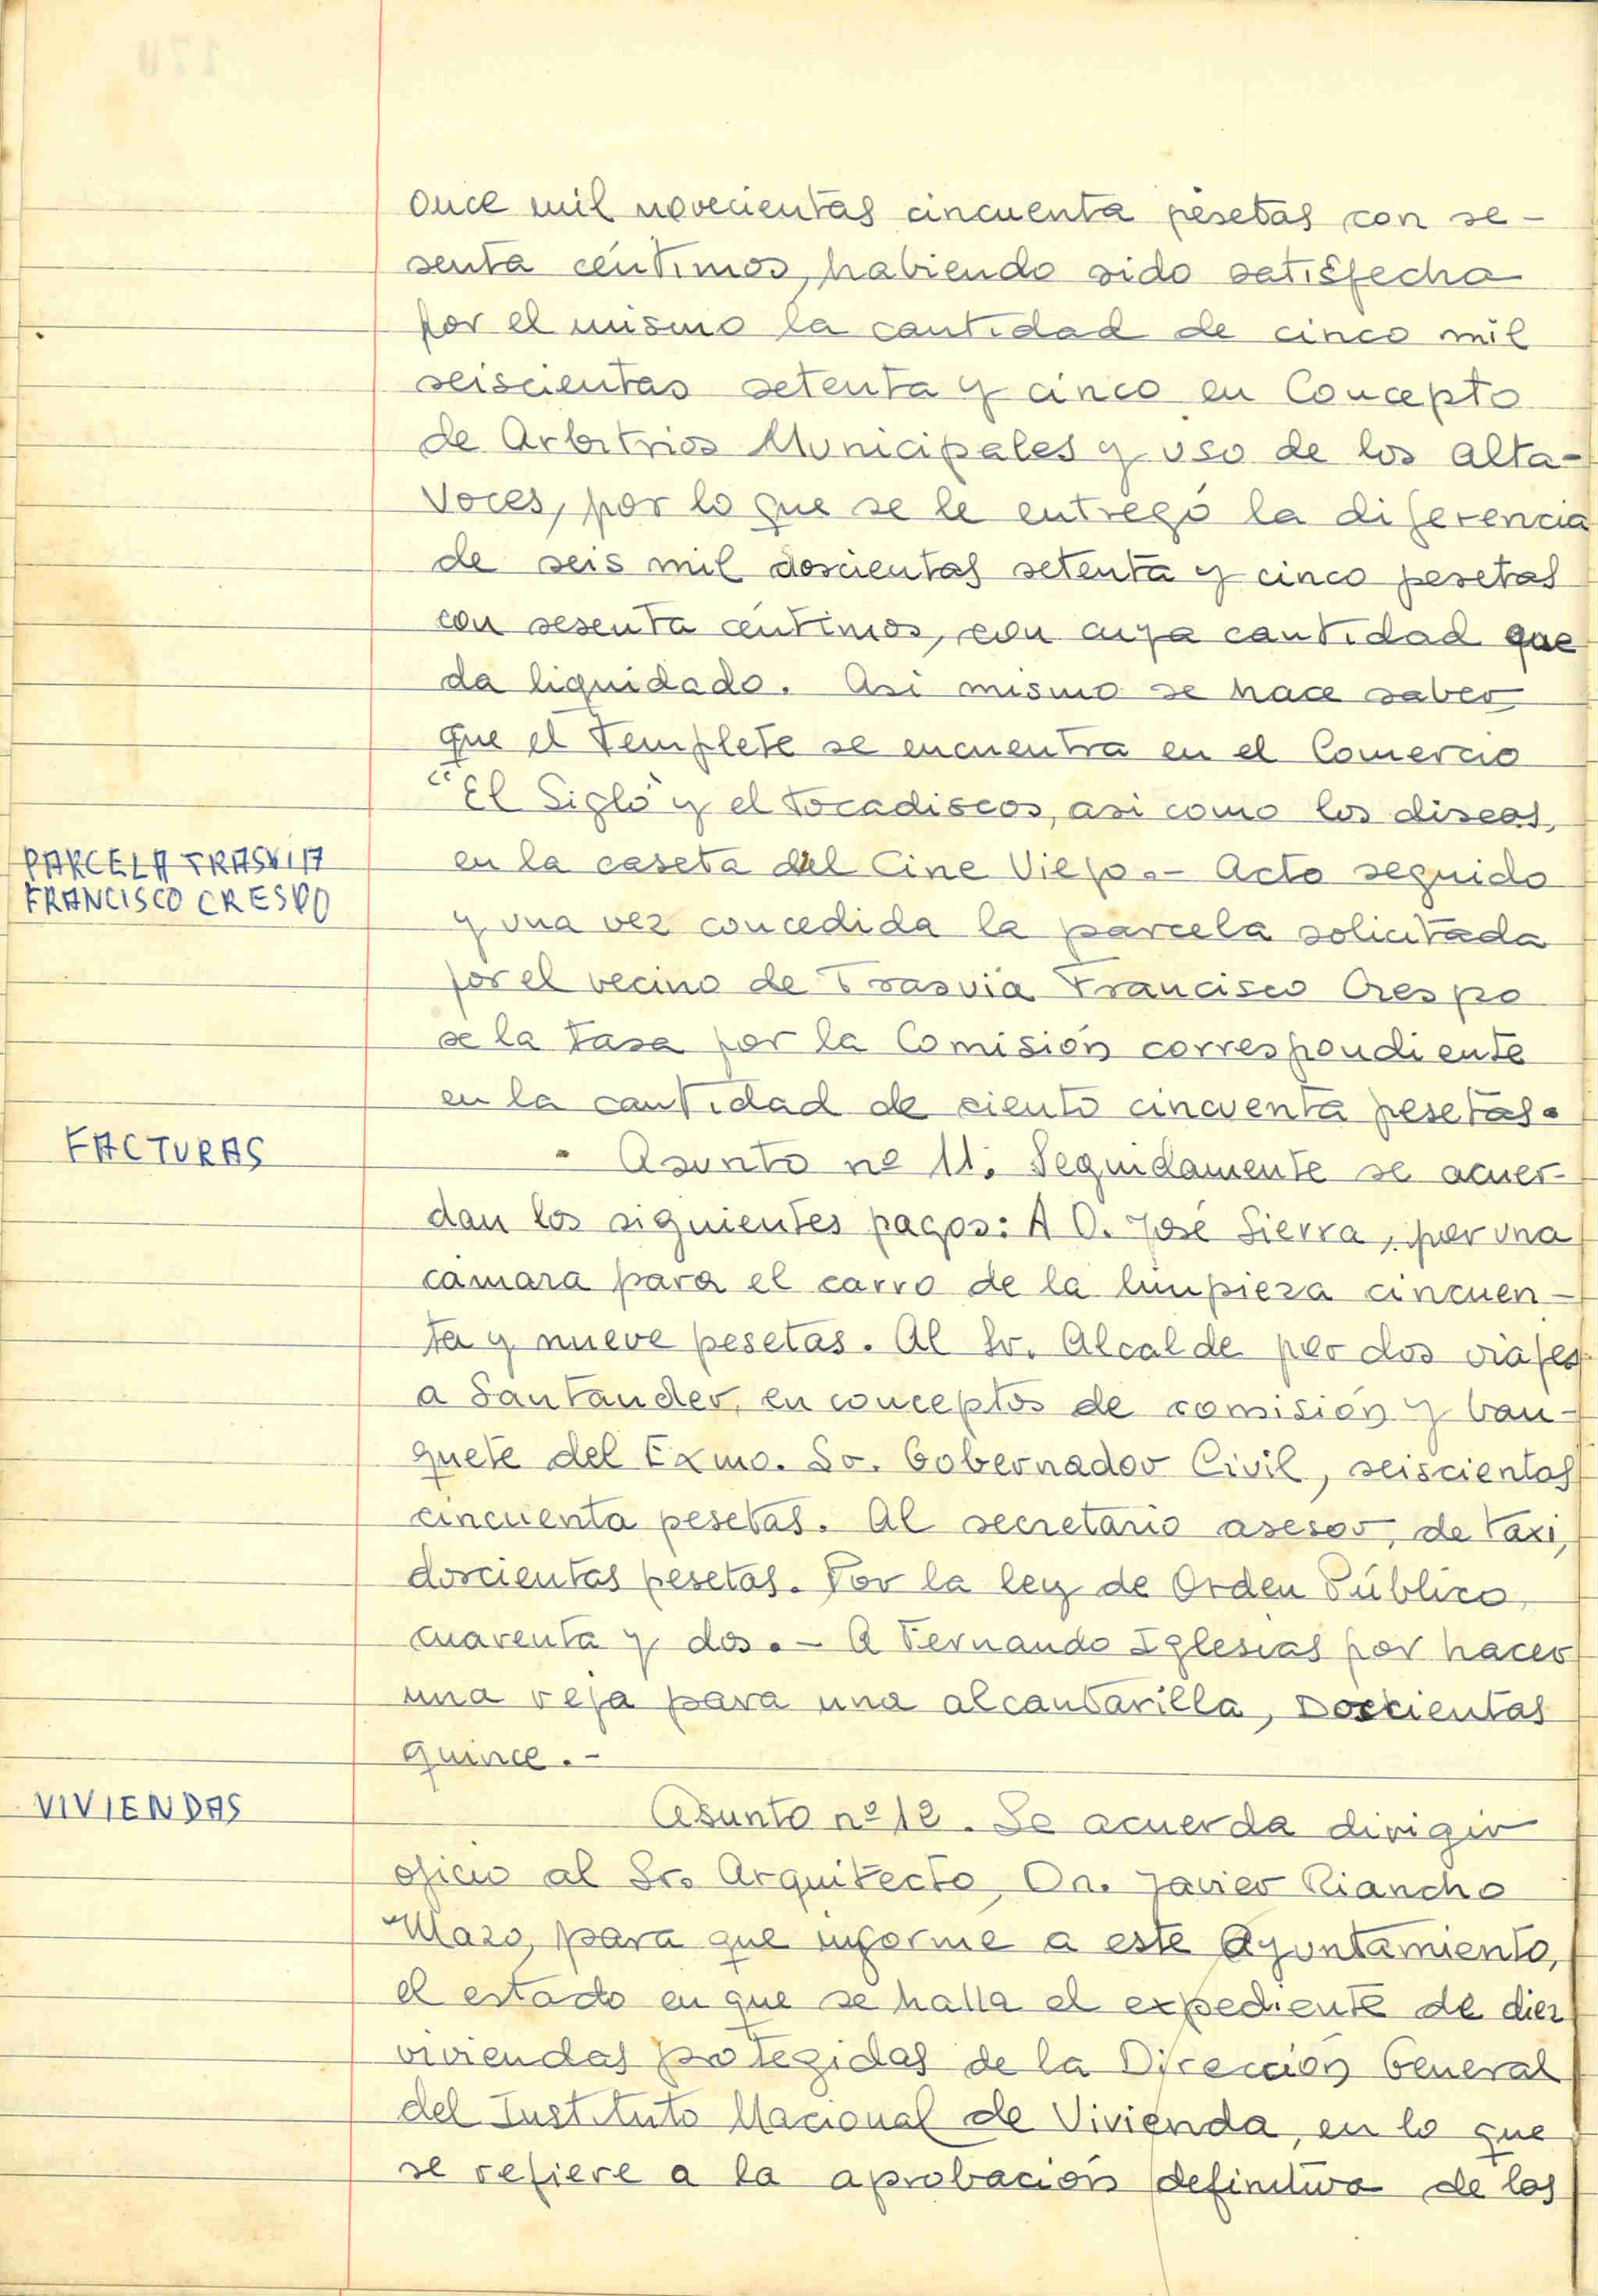 once mil novecientas cincuenta pesetas con se-
senta céntimos, habiendo sido satisfecha
por el mismo la cantidad de cinco mil
seiscientas setenta y cinco en Concepto
de Arbitrios Municipales y uso de los alta-
voces, por lo que se le entregó la diferencia
de seis mil doscientas setenta y cinco pesetas
con sesenta céntimos, con cuya cantidad que
da liquidado. Asi mismo se hace saber
que el Templete se encuentra en el Comercio
"El Siglo" y el tocadiscos, asi como los discos,
PARCELA TRASVIA
FRANCISCO CRESPO
en la caseta del Cine Viejo.- Acto seguido
y una vez concedida la parcela solicitada
por el vecino de Trasvia Francisco Crespo
se la tasa por la Comisión correspondiente
en la cantidad de ciento cincuenta pesetas.
FACTURAS
- Asunto nº 11. Seguidamente se acuer-
dan los siguientes pagos: A D. José Sierra, por una
cámara para el carro de la limpieza cincuen-
ta y nueve pesetas. Al Sr. Alcalde por dos viajes
a Santander, en conceptos de comisión y ban-
quete del Exmo. Sr. Gobernador Civil, seiscientas
cincuenta pesetas. Al secretario asesor, de taxi,
doscientas pesetas. Por la ley de Orden Público,
cuarenta y dos.- A Fernando Iglesias por hacer
una reja para una alcantarilla, Doscientas
quince.-
VIVIENDAS
Asunto nº 12. Se acuerda dirigir
oficio al Sr. Arquitecto, Dn. Javier Riancho
Mazo, para que informe a este Ayuntamiento,
el estado en que se halla el expediente de diez
viviendas protegidas de la Dirección General
del Instituto Nacional de Vivienda, en lo que
se refiere a la aprobación definitiva de las